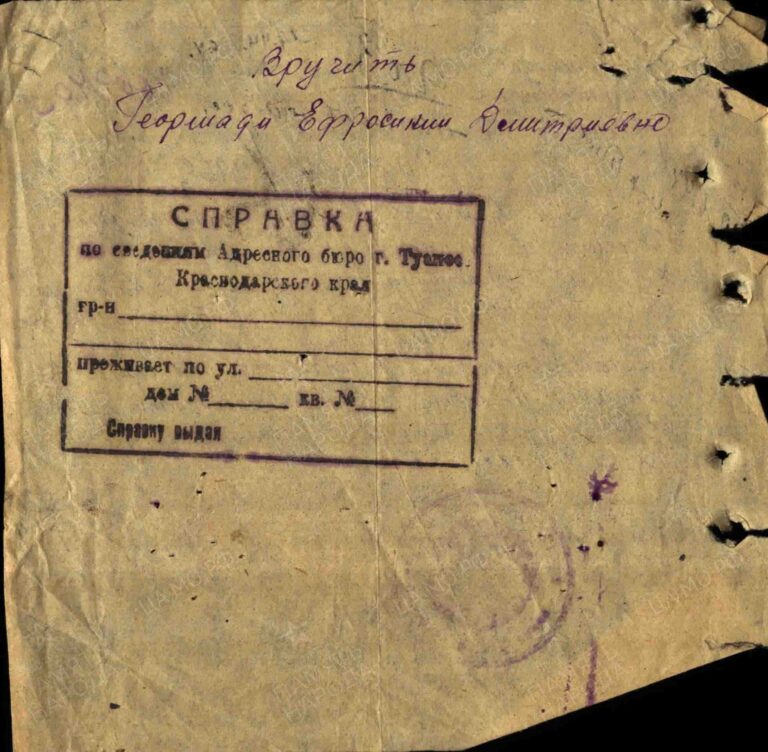 Вручить
Георгиади Ефросинии Дмитриевне
СПРАВКА
по сведениям Адресного бюро г. Туапсе
Краснодарского края
гр-н
проживает по ул.
дом № кв. №
Справку выдал